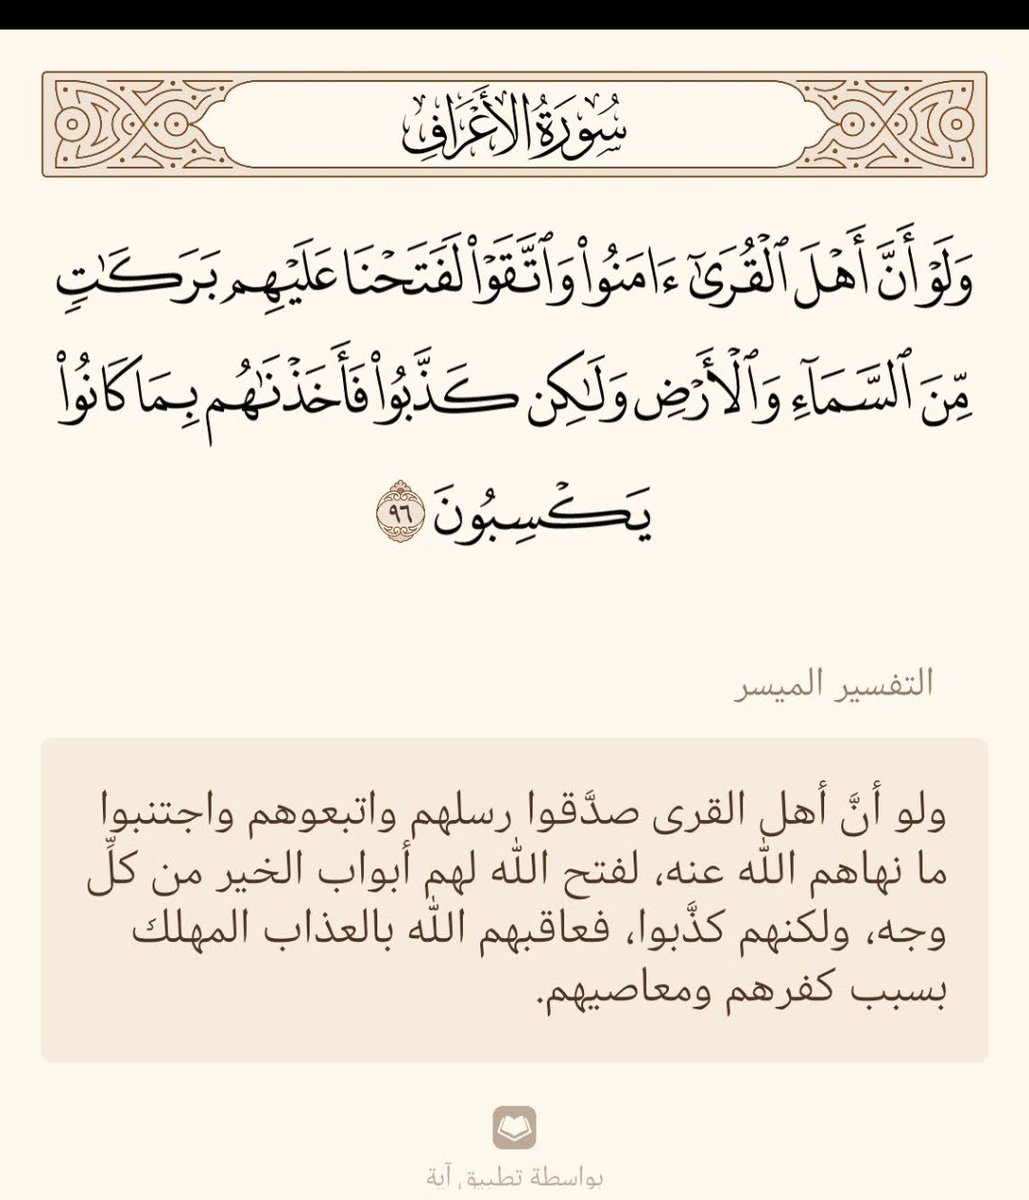 سُورَةُ الأَعْرَافِ
وَلَوْ أَنَّ أَهْلَ ٱلْقُرَىٰٓ ءَامَنُوا۟ وَٱتَّقَوْا۟ لَفَتَحْنَا عَلَيْهِم بَرَكَـٰتٍ
مِّنَ ٱلسَّمَآءِ وَٱلْأَرْضِ وَلَـٰكِن كَذَّبُوا۟ فَأَخَذْنَـٰهُم بِمَا كَانُوا۟
يَكْسِبُونَ ٩٦
التفسير الميسر
ولو أنَّ أهل القرى صدَّقوا رسلهم واتبعوهم واجتنبوا
ما نهاهم الله عنه، لفتح الله لهم أبواب الخير من كلِّ
وجه، ولكنهم كذَّبوا، فعاقبهم الله بالعذاب المهلك
بسبب كفرهم ومعاصيهم.
بواسطة تطبيق آية